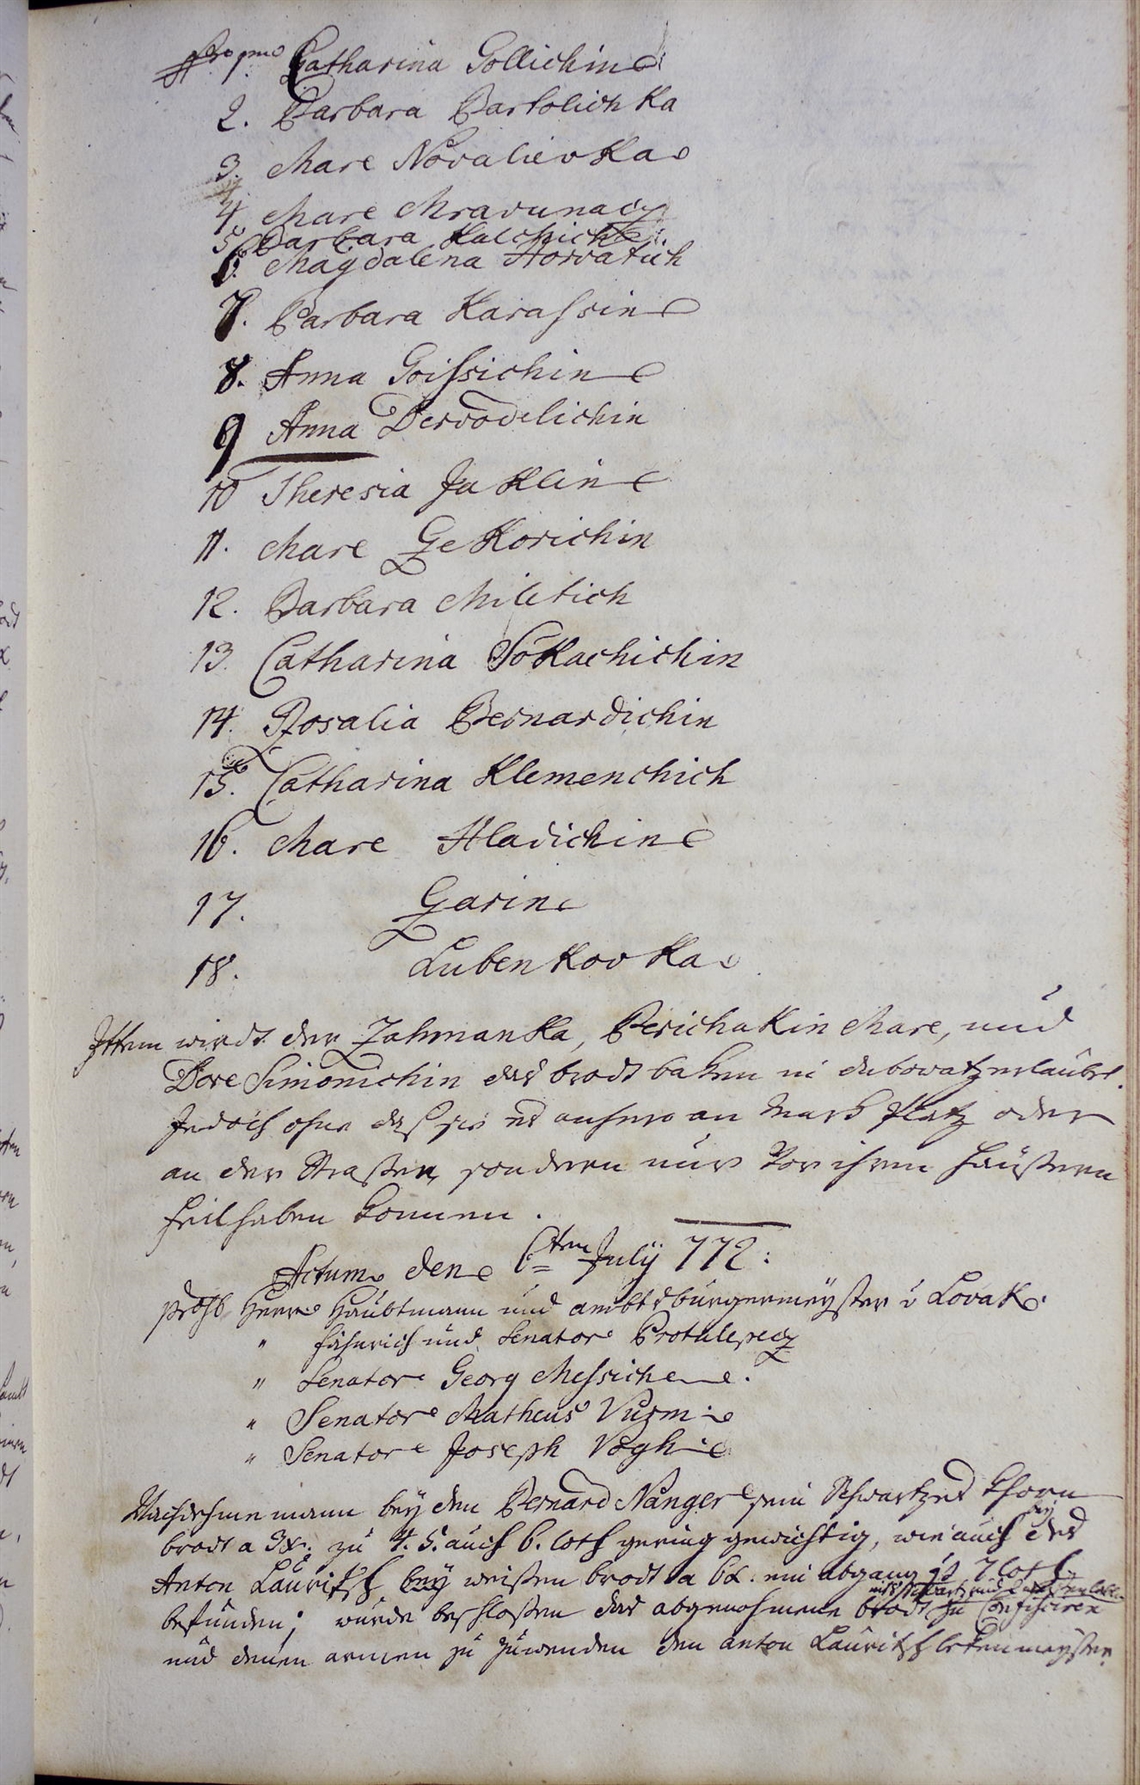 pmo Catharina Gollichin
2. Barbara Bartolichka
3. Mare Novalievka
4 Mare Mravunacz
5 Barbara Kalchich
6. Magdalena Horvatich
7. Barbara Karassin
8. Anna Goissichin
9 Anna Dervodelichin
10 Theresia Jaklin
11. Mare Gekorichin
12. Barbara Miletich
13. Catharina Sokachichin
14. Rosalia Bernardichin
15. Catharina Klemenchich
16. Mare Hladichin
17. Garin
18. Lubenkovka
Ittem wirdt der Zahmanka, Perichakin Mare, und
Dore Simonichin das brodt baken in erlaubt.
Jedoch ohne daß sie es anhero an Mark Platz oder
an der Straßen, sondern nur Vor ihren Häußern
feil haben können.
Actum den 6ten July 772:
Herr Haubtmann und ambts burgermeyster v Lovak.
" Fähnrich und Senator Protulipecz
" Senator Georg Messich
" Senator Matheus Vuzmi
" Senator Joseph Vogh
Nachdeme mann bey den Bernard Nanger sein Schwartzes Khorn
brodt a 3x. zu 4. 5. auch 6. loth gering gewichtig, wie auch bey des
Anton Lauritsch weißen brodt a 6x. ein abgang 7 loth
befunden; wurde beschloßen das abgenohmene brodt zu Confisciren
und denen armen zu zuwenden den anton Lauritsch